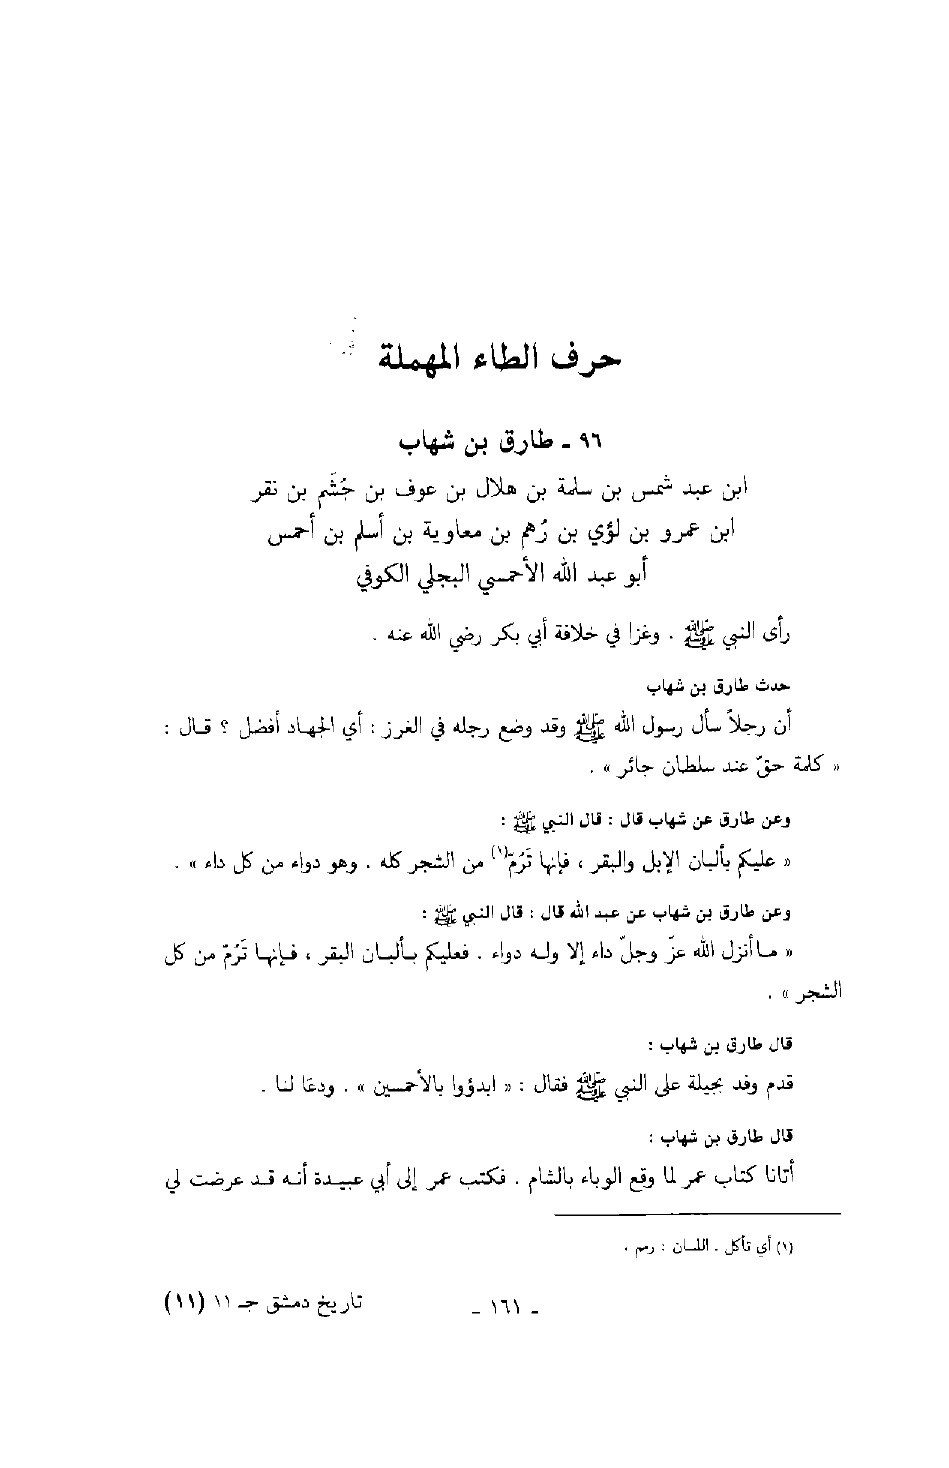 حرف الطاء المهملة
٩٦ ـ طارق بن شهاب
ابن عبد شمس بن سلمة بن هلال بن عوف بن جُشَم بن نقر
ابن عمرو بن لؤي بن رُهم بن معاوية بن أسلم بن أحمس
أبو عبد الله الأحمسي البجلي الكوفي
رأى النبي ﷺ . وغزا في خلافة أبي بكر رضي الله عنه .
حدث طارق بن شهاب
أن رجلاً سأل رسول الله ﷺ وقد وضع رجله في الغرز : أي الجهاد أفضل ؟ قال :
« كلمة حقّ عند سلطان جائر » .
وعن طارق عن شهاب قال : قال النبي ﷺ :
« عليكم بألبان الإبل والبقر ، فإنها تَرُمّ(١) من الشجر كله . وهو دواء من كل داء » .
وعن طارق بن شهاب عن عبد الله قال : قال النبي ﷺ :
« ما أنزل الله عزّ وجلّ داء إلا وله دواء . فعليكم بألبان البقر ، فإنها تَرُمّ من كل
الشجر » .
قال طارق بن شهاب :
قدم وفد بجيلة على النبي ﷺ فقال : « ابدؤوا بالأحمسين » . ودعا لنا .
قال طارق بن شهاب :
أتانا كتاب عمر لما وقع الوباء بالشام . فكتب عمر إلى أبي عبيدة أنه قد عرضت لي
(١) أي تأكل . اللسان : رمم .
ـ ١٦١ ـ
تاريخ دمشق جـ ١١ (١١)